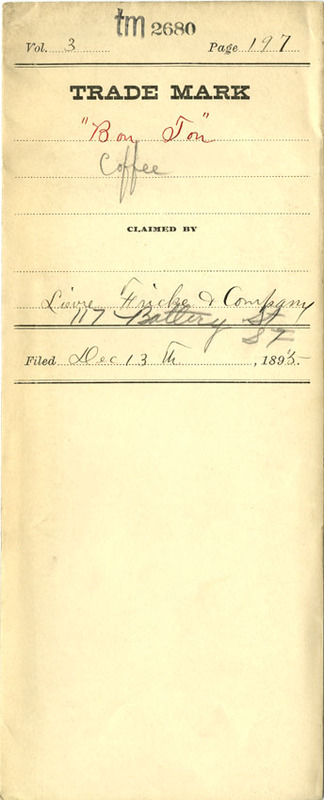 tm 2680
Vol. 3 Page 197
TRADE MARK
"Bon Ton"
Coffee
CLAIMED BY
Lievre Fricke & Company
117 Battery St
SF
Filed Dec 13 Th, 1895.